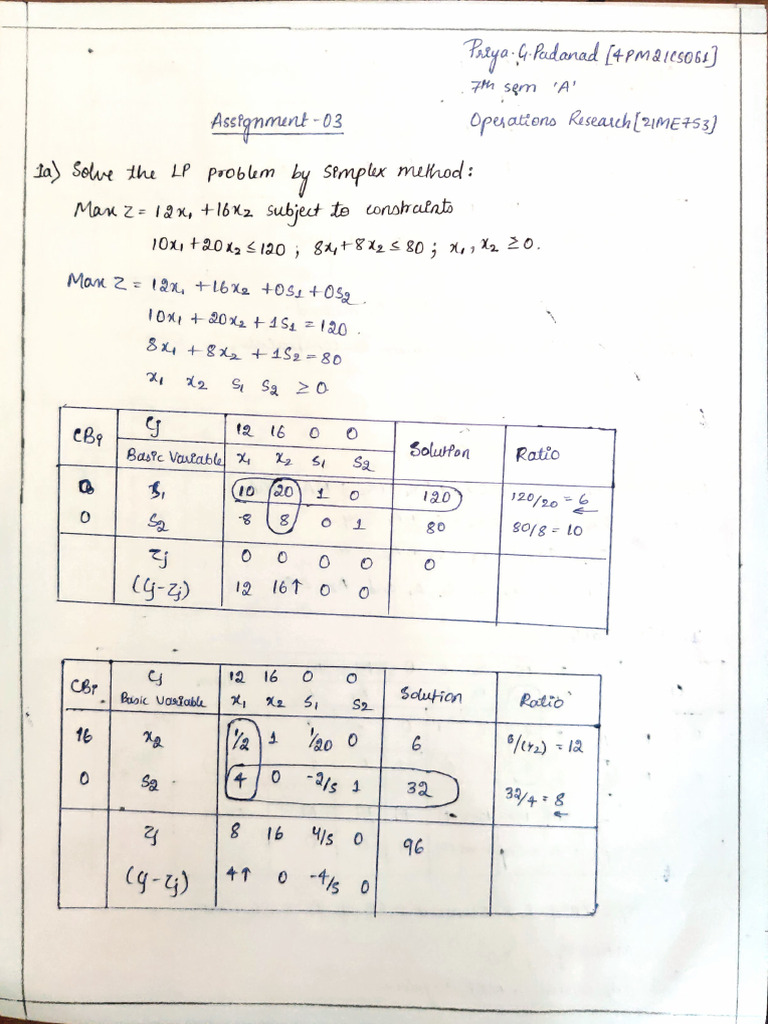 Priya.G.Padanad [4PM21CS061]
7th sem 'A'
Assignment-03
Operations Research [21ME753]
1a) Solve the LP problem by simplex method:
Max Z = 12x₁ + 16x₂ subject to constraints
10x₁ + 20x₂ ≤ 120 ; 8x₁ + 8x₂ ≤ 80 ; x₁, x₂ ≥ 0.
Max Z = 12x₁ + 16x₂ + 0S1 + 0S2.
10x₁ + 20x₂ + 1S1 = 120.
8x₁ + 8x₂ + 1S2 = 80
x₁ x₂ S₁ S₂ ≥ 0
CBi Cj 12 16 0 0 Solution Ratio
Basic Variable x₁ x₂ S₁ S₂
0 S₁ 10 20 1 0 120 120/20 = 6 ←
0 S₂ 8 8 0 1 80 80/8 = 10
Zj 0 0 0 0 0
(Cj-Zj) 12 16↑ 0 0
CBi Cj 12 16 0 0 Solution Ratio
Basic Variable x₁ x₂ S₁ S₂
16 x₂ 1/2 1 1/20 0 6 6/(1/2) = 12
0 S₂ 4 0 -2/5 1 32 32/4 = 8 ←
Zj 8 16 4/5 0 96
(Cj-Zj) 4↑ 0 -4/5 0